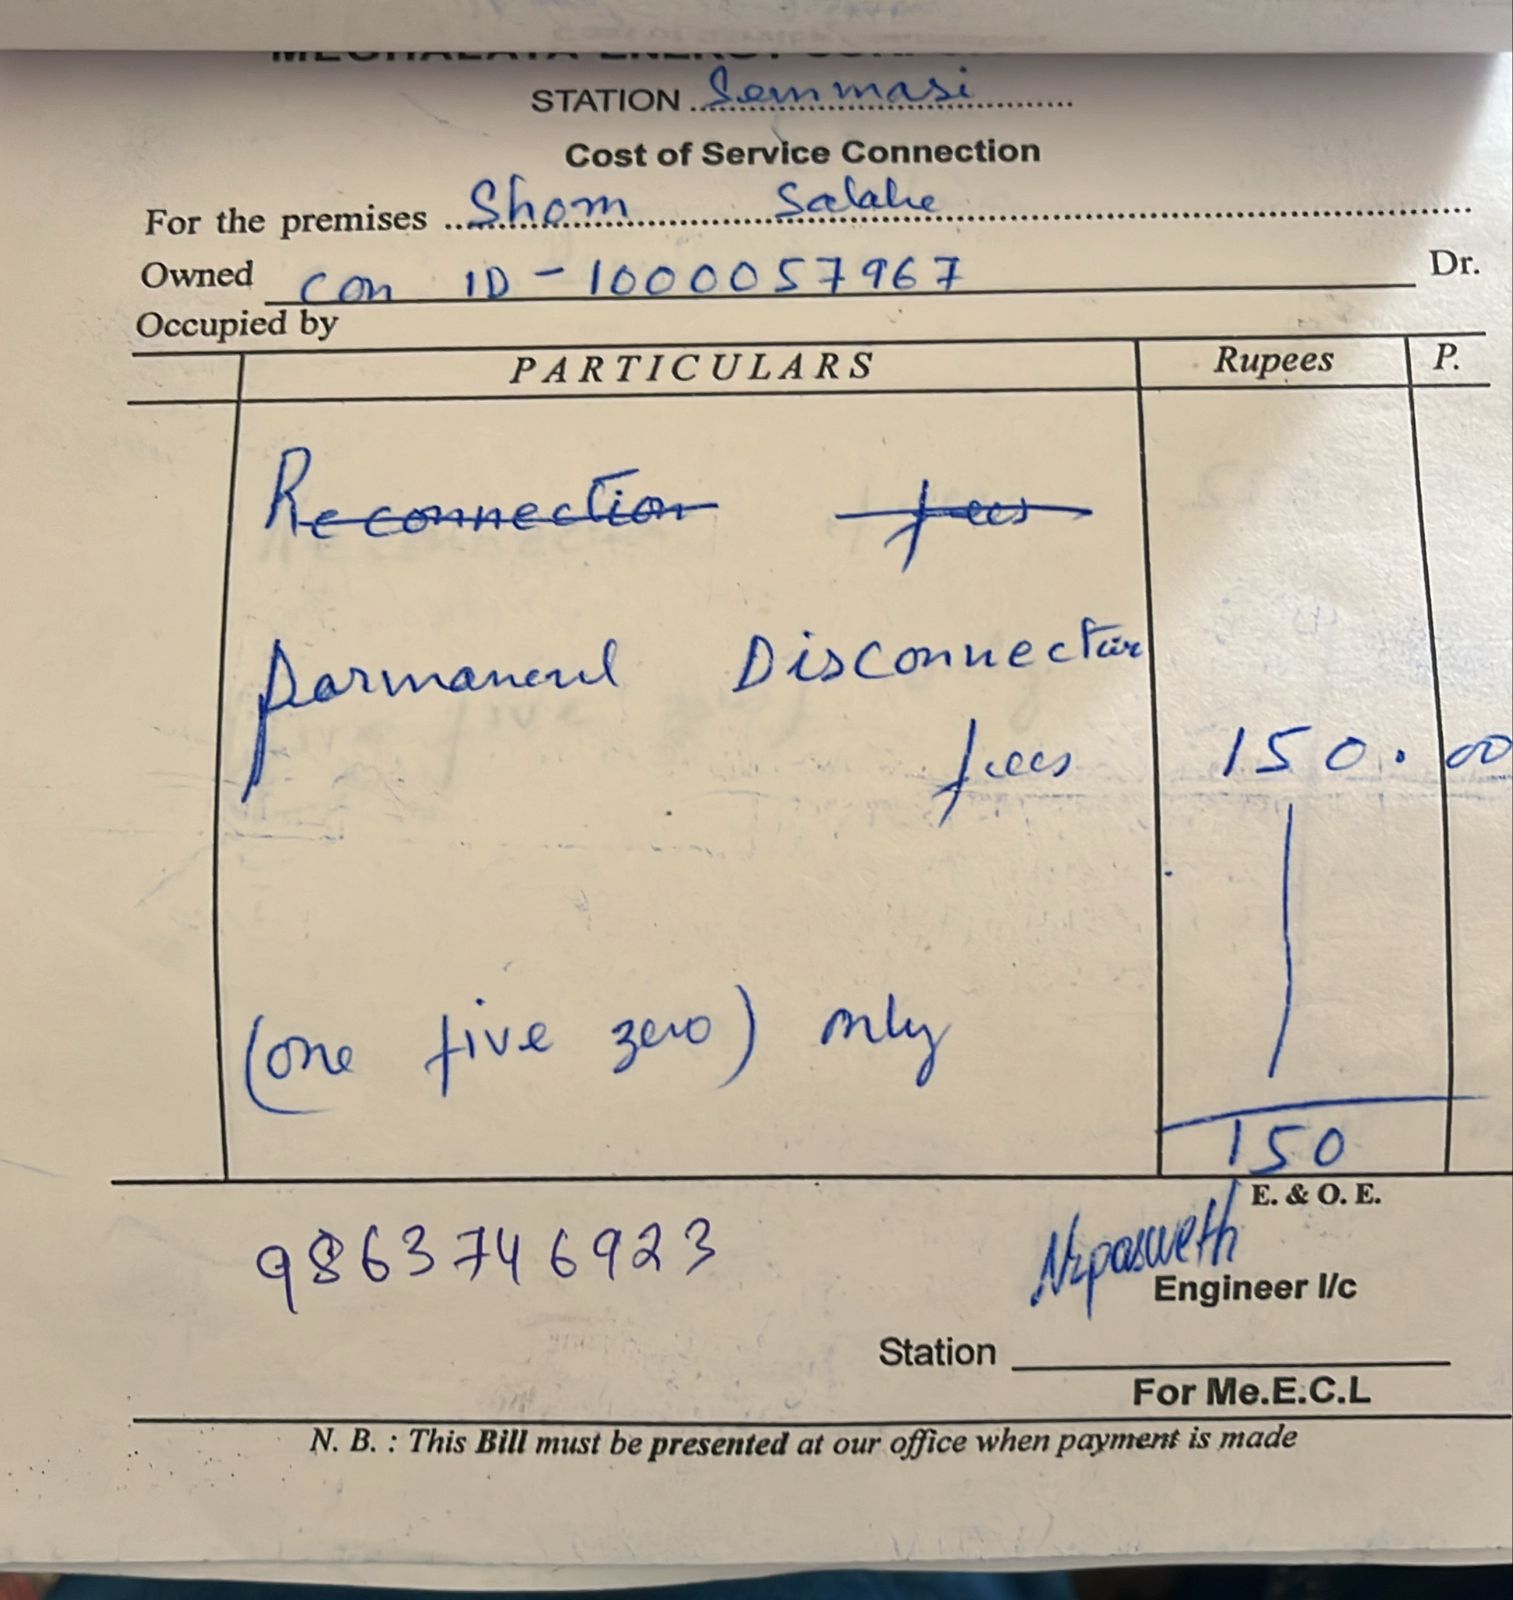 STATION Semmasi
Cost of Service Connection
For the premises Shom Salahe
Owned Con ID - 1000057967 Dr.
Occupied by
PARTICULARS Rupees P.
Reconnection fees
parmanent Disconnection
fees 150.00
(one five zero) only
150
E. & O. E.
9863746923
Engineer I/c
Station
For Me.E.C.L
N. B. : This Bill must be presented at our office when payment is made